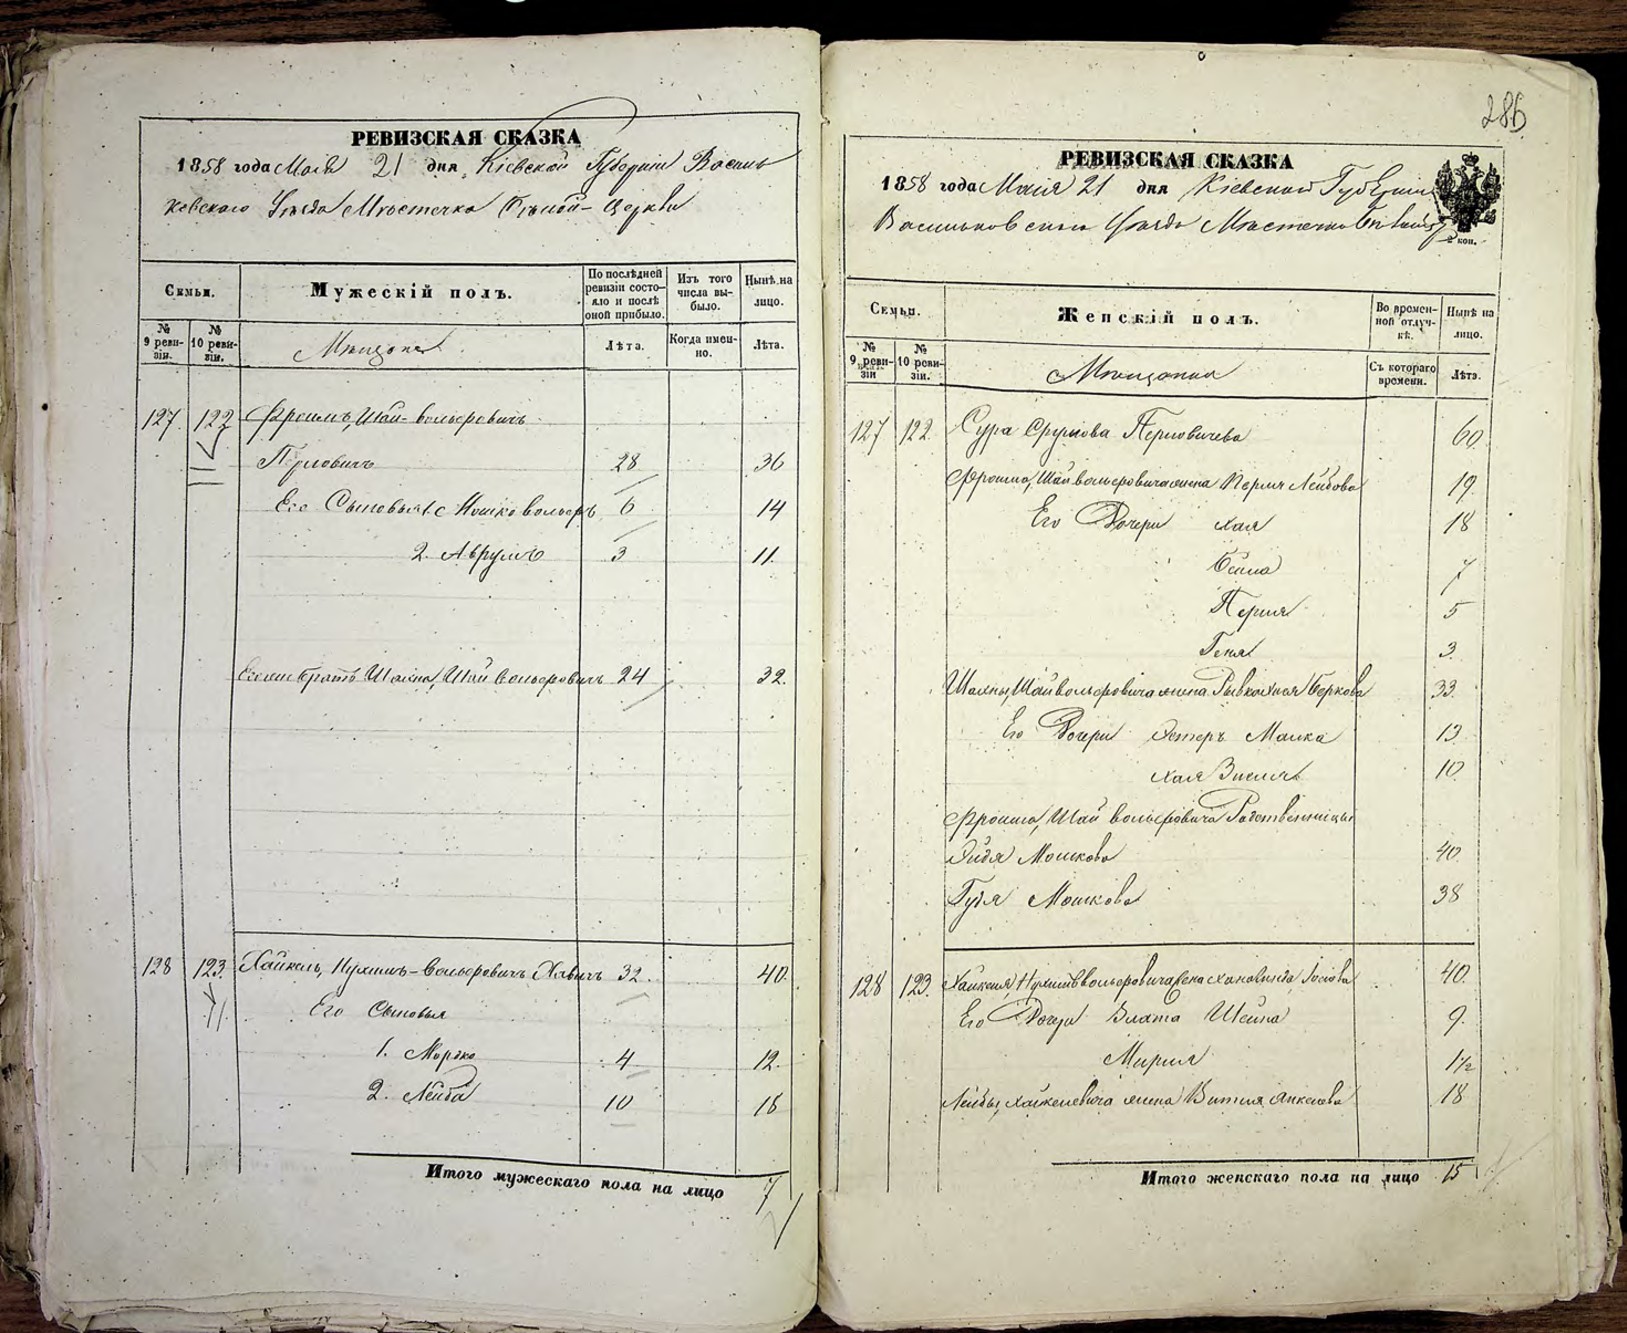 РЕВИЗСКАЯ СКАЗКА
1858 года Маія 21 дня Кіевской Губерніи Василь
ковскаго Уѣзда Мѣстечка Бѣлой-Церкви
Семьи.
Мужескій полъ.
По послѣдней ревизіи состояло и послѣ оной прибыло.
Изъ того числа выбыло.
Нынѣ на лицо.
№ 9 ревизіи.
№ 10 ревизіи.
Мѣщане
Лѣта.
Когда именно.
Лѣта.
127 122 Фроимъ, Шай-Вольфовичъ
Перловичъ 28 36
Его Сыновья 1. Мошко Вольфъ 6 14
2. Аврумъ 3 11.
Его же братъ Шахна, Шай Вольфовичъ 24 32.
128 123. Хайкель, Нухимъ-Вольфовичъ 32. 40.
Его Сыновья
1. Мордко 4 12.
2. Лейба 10 18
Итого мужескаго пола на лицо 7
286
РЕВИЗСКАЯ СКАЗКА
1858 года Маія 21 дня Кіевской Губерніи
Васильковскаго Уѣзда Мѣстечка
коп.
Семьи.
Женскій полъ.
Во временной отлучкѣ.
Нынѣ на лицо.
№ 9 ревизіи
№ 10 ревизіи.
Мѣщанки
Съ котораго времени.
Лѣта.
127 122. Сура Сруловa Перловичева 60.
Фроима, Шай Вольфовича жена Перля Лейбова 19.
Его Дочери Хая 18
Бейла 7
Перля 5
Геня 3.
Шахны, Шай Вольфовича жена Рывка Беркова 33.
Его Дочери Эстеръ Малка 13.
Хая 10.
Фроима, Шай Вольфовича Родственницы
Эйдя Мошкова 40.
Гудя Мошкова 38
128 123. Хайкеля, Нухимъ Вольфовича жена 40.
Его Дочери Злата Шейна 9.
Мирля 1½
Лейбы, Хайкелевича жена Витля Янкелева 18
Итого женскаго пола на лицо 15